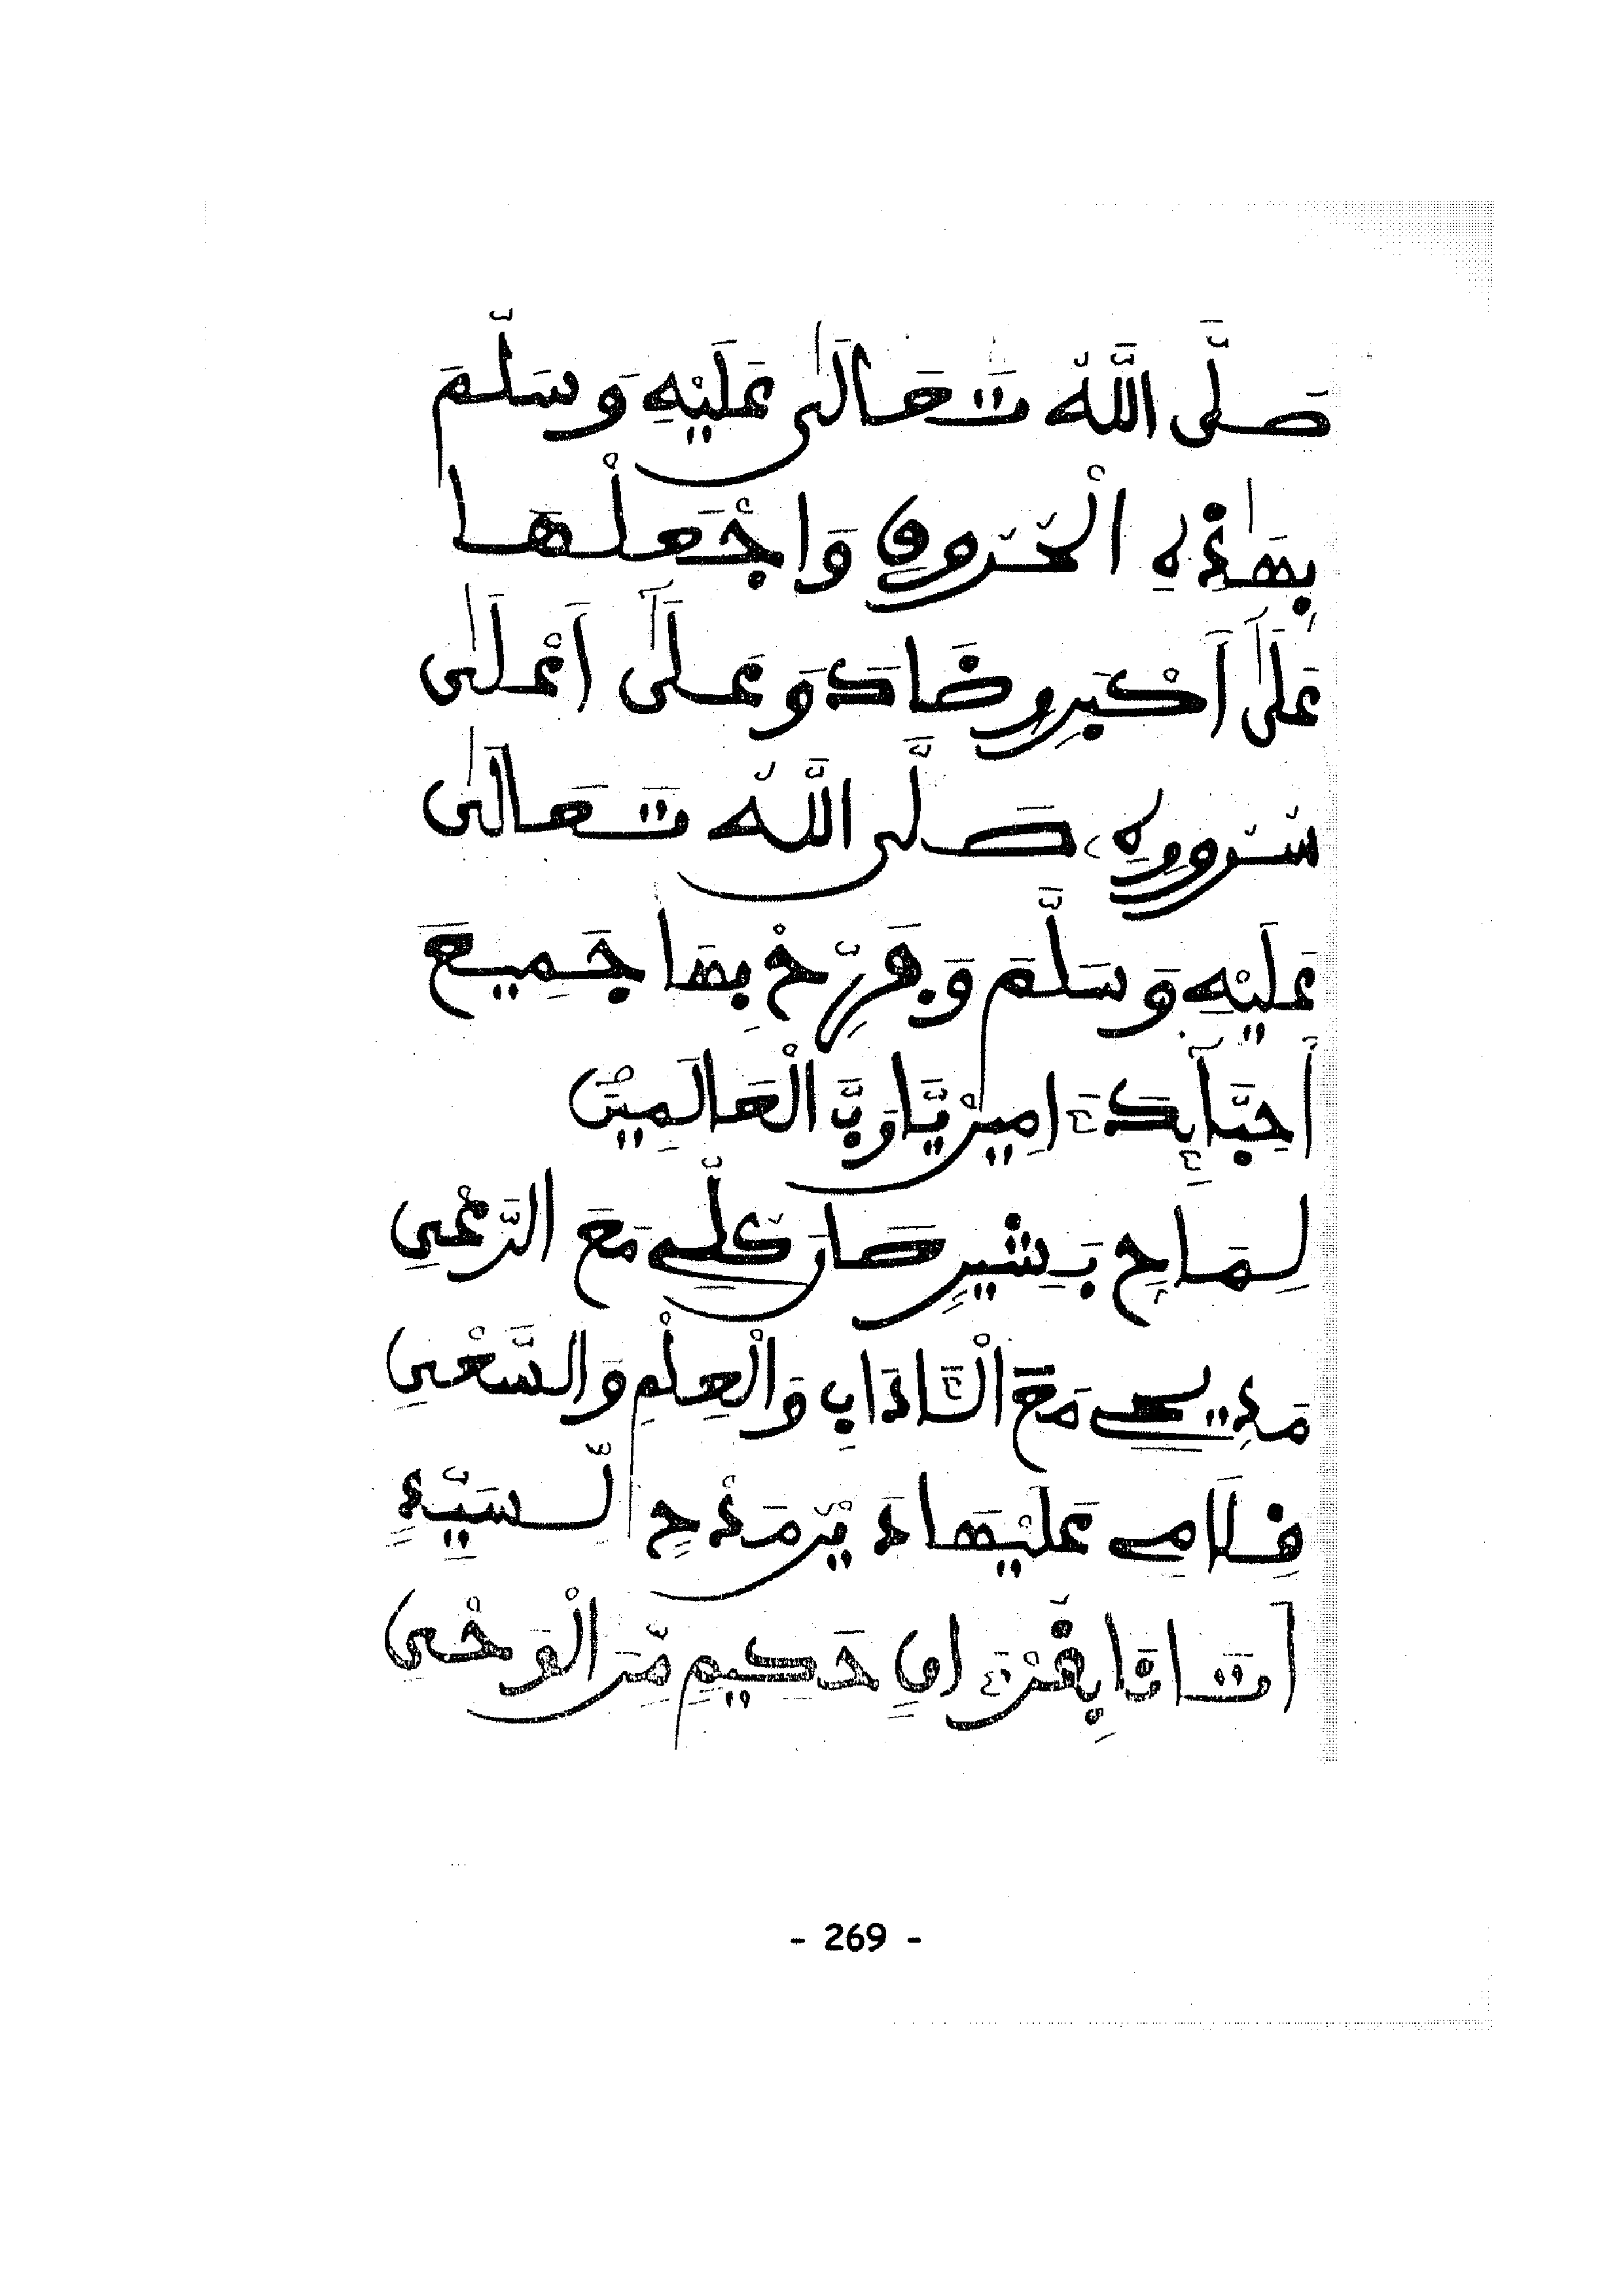 صَلَّى اللَّهُ تَعَالَىٰ عَلَيْهِ وَسَلَّمَ
بِهَٰذِهِ الْحُرُوفِ وَاجْعَلْهَا
عَلَىٰ أَكْبَرِ رِضَاكَ وَعَلَىٰ أَعْلَىٰ
سُرُورِهِ صَلَّى اللَّهُ تَعَالَىٰ
عَلَيْهِ وَسَلَّمَ وَفَرِّحْ بِهَا جَمِيعَ
أَحِبَّائِكَ ءَامِينَ يَا رَبَّ الْعَالَمِينَ
لِمَاحٍ بَشِيرٍ صَارَ كُلِّي مَعَ الرَّعْيِ
مَدِيحِي مَعَ الْـَٔادَابِ وَالْعِلْمِ وَالسَّعْيِ
فِلَامِي عَلَيْهَا مَدْحٌ لِسَيِّدٍ
أَتَانَا بِقُرْءَانٍ حَكِيمٍ مِّنَ الْوَحْيِ
- 269 -